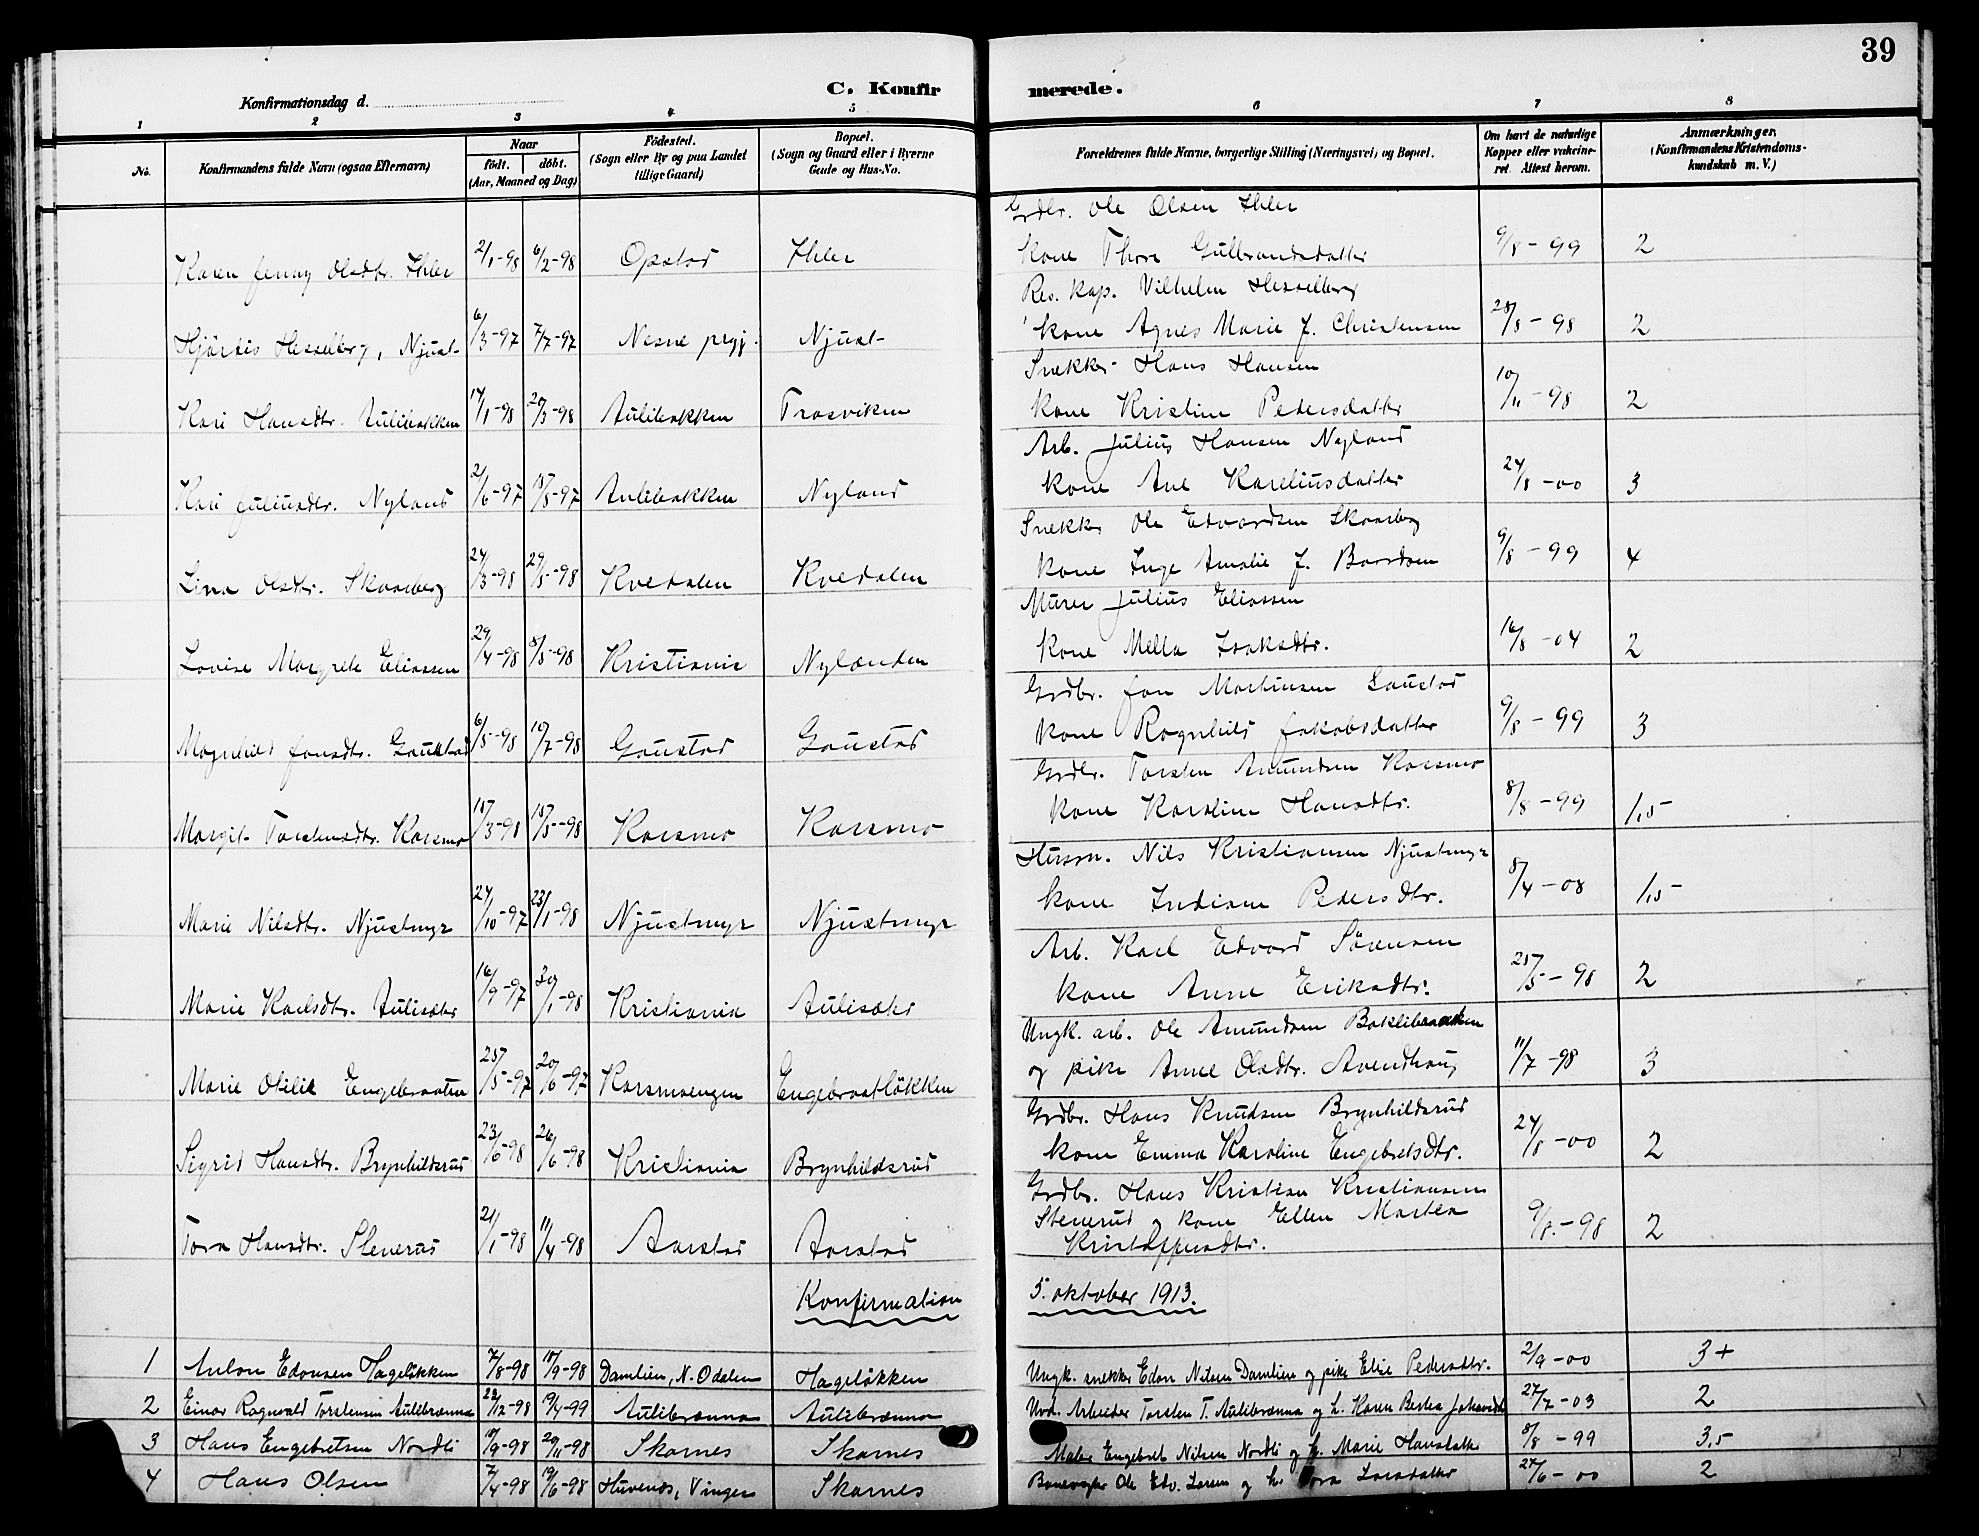 39
C. Konfirmerede.
Konfirmationsdag d.
1 2 3 4 5 6 7 8
No. Konfirmandens fulde Navn (ogsaa Efternavn) Naar født. døbt. (Aar, Maaned og Dag) Fødested. (Sogn eller By og paa Landet tillige Gaard) Bopæl. (Sogn og Gaard eller i Byerne Gade og Hus-No. Forældrenes fulde Navne, borgerlige Stilling (Næringsvei) og Bopæl. Om havt de naturlige Kopper eller vakcineret. Attest herom. Anmærkninger. (Konfirmandens Kristendomskundskab m. V.)
Grdbr. Ole Olsen Ihler
Karen Jenny Olsdtr. Ihler 2/1-98 6/2-98 Opstad Ihler kone Thora Gulbrandsdatter 9/8-99 2
Res. kap. Vilhelm Hesselberg
Hjørdis Hesselberg, Njust- 6/3-97 7/7-97 Nesne prgj. Njust- kone Agnes Marie f. Christensen 28/8-98 2
Snekker Hans Hansen
Kari Hansdtr. Aulibakken 17/1-98 20/3-98 Aulibakken Trosviken kone Kristine Pedersdatter 10/11-98 2
Arb. Julius Hansen Nyland
Kari Juliusdtr. Nyland 2/6-97 15/8-97 Aulibakken Nyland kone Ane Kareliusdatter 24/8-00 3
Snekker Ole Edvardsen Skaarberg
Lina Olsdtr. Skaarberg 24/3-98 29/5-98 Kvedalen Kvedalen kone Inga Amalie f. Baardsen 9/8-99 4
Murer Julius Eliassen
Lovise Margrete Eliassen 29/4-98 8/5-98 Kristiania Nylænden kone Mella Isaksdtr. 16/8-04 2
Grdbr. Jon Martinsen Gaustad
Magnhild Jonsdtr. Gaustad 6/5-98 10/7-98 Gaustad Gaustad kone Ragnhild Jakobsdatter 9/8-99 3
Grdbr. Torsten Amundsen Korsmo
Margit Torstensdtr. Korsmo 15/3-98 15/5-98 Korsmo Korsmo kone Karoline Hansdtr. 8/8-99 1,5
Husm. Nils Kristiansen Njustmyr
Marie Nilsdtr. Njustmyr 24/10-97 23/1-98 Njustmyr Njustmyr kone Indiane Pedersdtr. 8/4-08 1,5
Arb. Karl Edvard Sørensen
Marie Karlsdtr. Aulisæter 16/9-97 30/1-98 Kristiania Aulisætr kone Anne Eriksdtr. 25/5-98 2
Ungk. arb. Ole Amundsen Baklibraaten
Marie Otilie Engebraaten 25/5-97 20/6-97 Korsmoengen Engebraatløkken og pike Anne Olsdtr. 11/7-98 3
Grdbr. Hans Knudsen Brynhildsrud
Sigrid Hansdtr. Brynhildsrud 23/6-98 26/6-98 Kristiania Brynhildsrud kone Emma Karoline Engebretsdtr. 24/8-00 2
Grdbr. Hans Kristian Kristiansen
Tora Hansdtr. Stenerud 21/1-98 11/4-98 Aarstad Aarstad Stenerud og kone Ellen Martea 9/8-98 2
Kristoffersdtr.
Konfirmation 5. oktober 1913.
1 Anton Edonsen Hageløkken 7/8-98 18/9-98 Damlien, N. Odalen Hageløkken Ungk. snekker Edon Nilsen Damlien og pike Elise Pedersdtr. 2/9-00 3+
2 Einar Ragnvald Torstensen Aulibrænna 22/12-98 9/4-99 Aulibrænna Aulibrænna Arbeider Torsten T. Aulibrænna og h. Karen Bertea 27/7-03 2
3 Hans Engebretsen Nordli 19/9-98 20/11-98 Skarnes Skarnes Maler Engebret Nilsen Nordli og h. Marie Hansdatter 8/8-99 3,5
4 Hans Olsen 7/4-98 19/6-98 Vinger Skarnes Banevogter Ole Edv. Larsen og h. Larsdatter 27/6-00 2